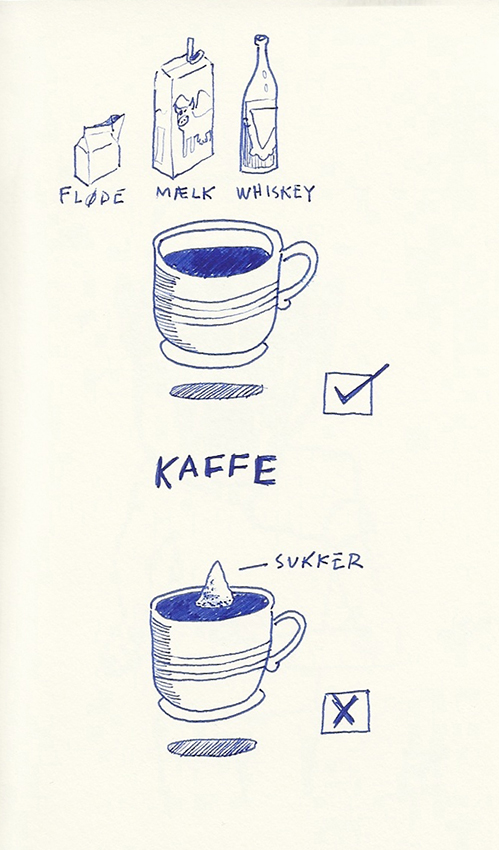 FLØDE MÆLK WHISKEY
KAFFE
SUKKER